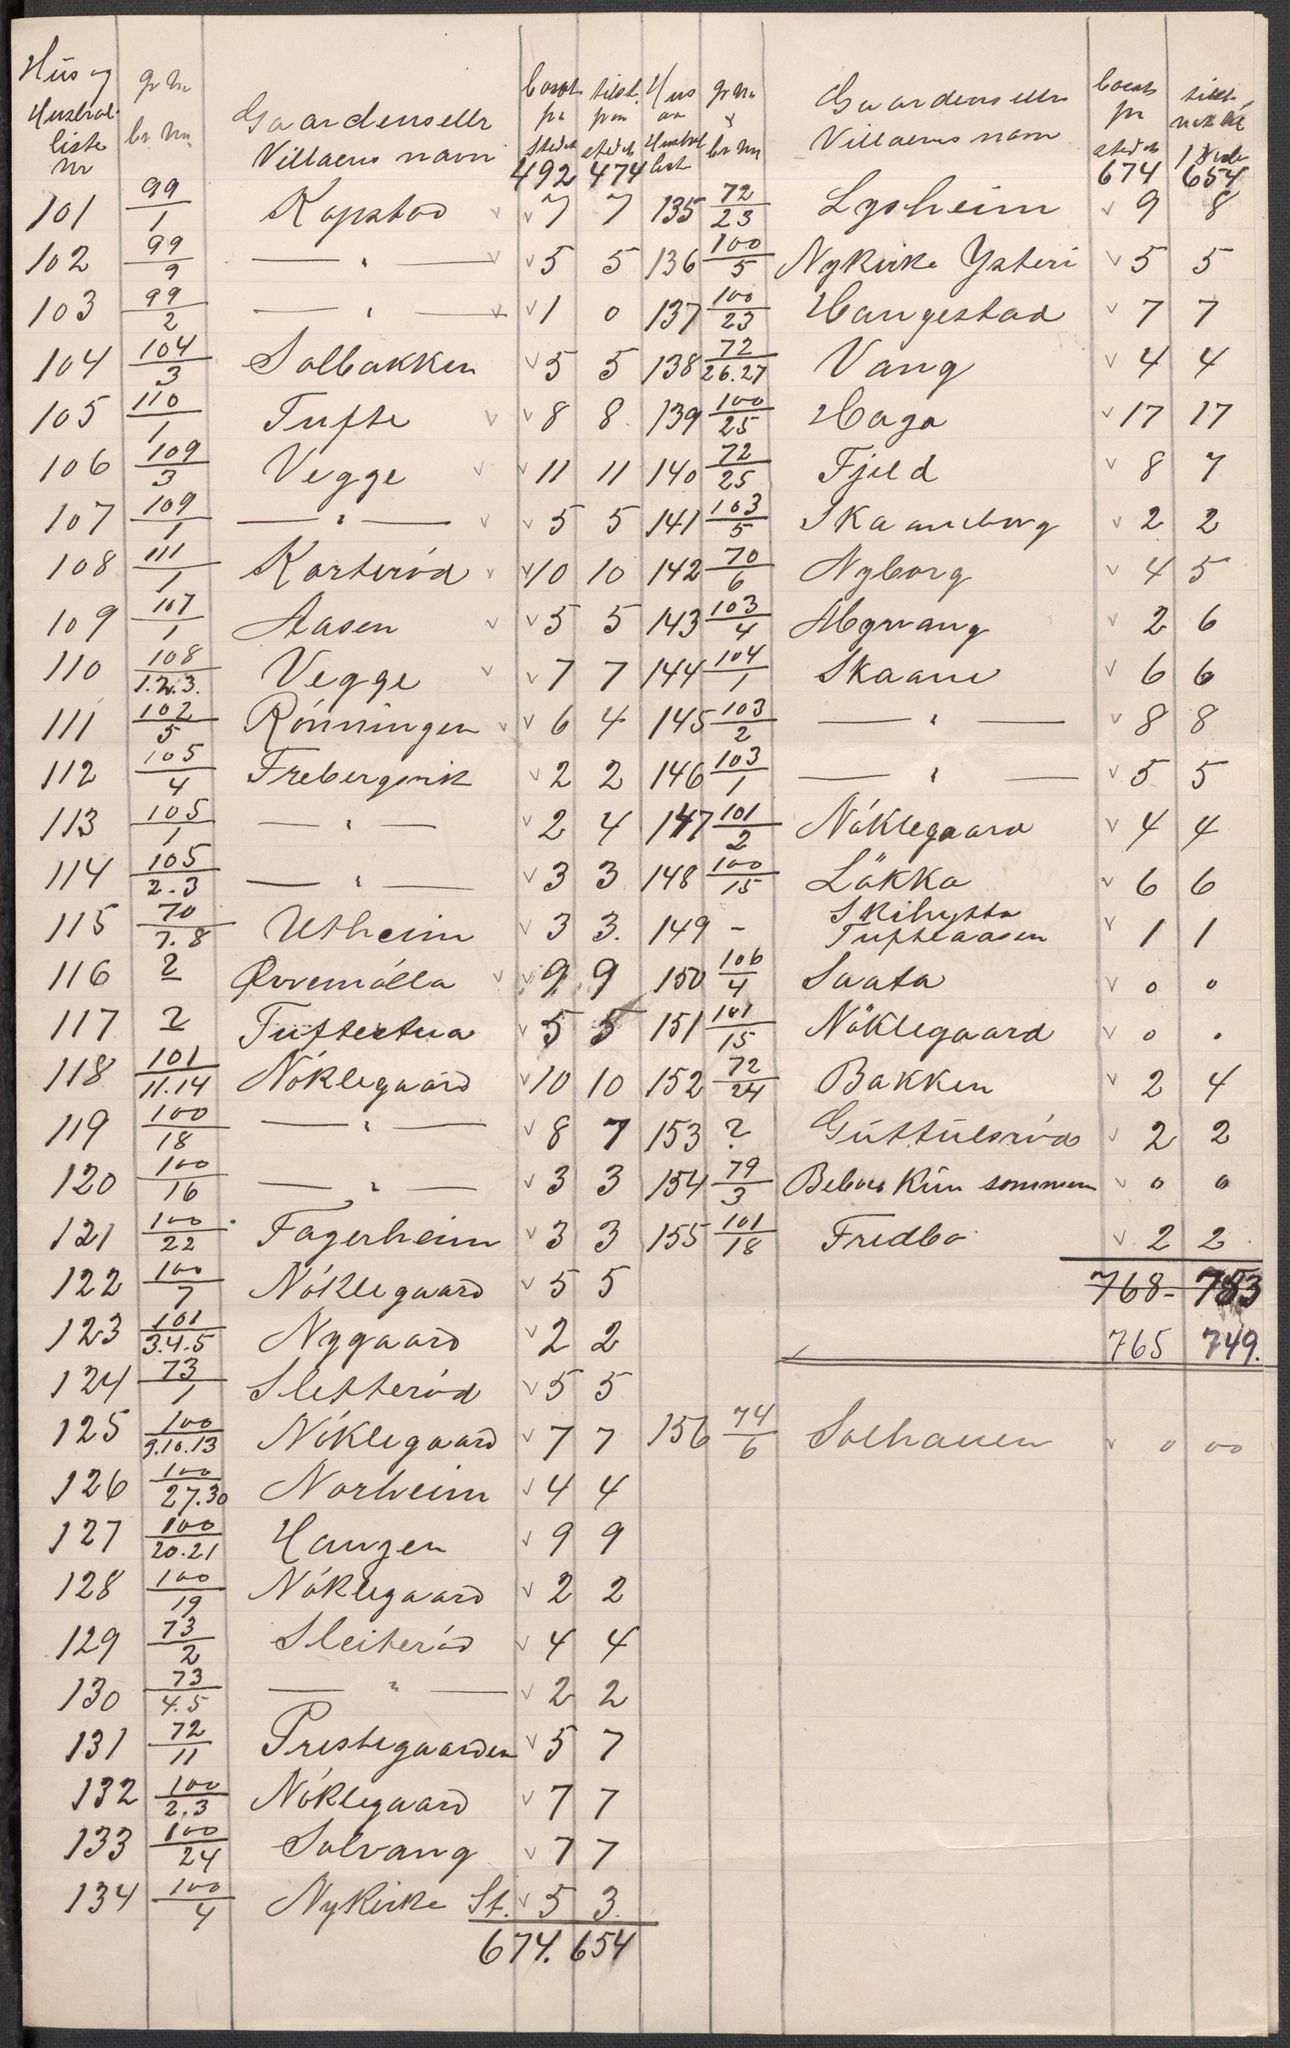 Hus og Hushol. liste Nr | gr nr br nr. | Gaardens ellr Villaens navn | bosat pa stedet | tilst. paa stedet | Hus og Hushol list | gr nr & br nr | Gaardens ellr Villaens navn | bosat pa stedet
492 474 674 654
101 99/1 Kopstad 7 7 135 72/23 Lysheim 9 8
102 99/9 — " — 5 5 136 100/5 Nykirke Ysteri 5 5
103 99/2 — " — 1 0 137 100/23 Haugestad 7 7
104 104/3 Solbakken 5 5 138 72/26.27 Vang 4 4
105 110/1 Tufte 8 8 139 100/25 Haga 17 17
106 109/3 Vegge 11 11 140 72/25 Fjeld 8 7
107 109/1 — " — 5 5 141 103/5 Skaaneborg 2 2
108 111/1 Korterød 10 10 142 70/6 Nyborg 4 5
109 107/1 Aasen 5 5 143 103/4 Myrvang 2 6
110 108/1.2.3. Vegge 7 7 144 104/1 Skaane 6 6
111 102/5 Rønningen 6 4 145 103/2 — " — 8 8
112 105/4 Frebergsvik 2 2 146 103/1 — " — 5 5
113 105/1 — " — 2 4 147 101/2 Nøklegaard 4 4
114 105/2-3 — " — 3 3 148 100/15 Løkka 6 6
115 70/7.8 Utheim 3 3. 149 - Skihytta Tufteaasen 1 1
116 2 Øvremølla 9 9 150 106/4 Saata 0 0
117 2 Tuftestua 5 5 151 101/15 Nøklegaard 0 .
118 101/11.14 Nøklegaard 10 10 152 72/24 Bakken 2 4
119 100/18 — " — 8 7 153 ? Guttulsrød 2 2
120 100/16 — " — 3 3 154 79/3 Beboes kun sommeren 0 0
121 100/22 Fagerheim 3 3 155 101/18 Fredbo 2 2
122 100/7 Nøklegaard 5 5 768- 753
123 101/3.4.5 Nygaard 2 2 765 749.
124 73/1 Sletterød 5 5
125 100/9.10.13 Nøklegaard 7 7 156 74/6 Solhauen 0 00
126 100/27.30 Norheim 4 4
127 100/20.21 Haugen 9 9
128 100/19 Nøklegaard 2 2
129 73/2 Sleiterød 4 4
130 73/4.5 — " — 2 2
131 72/11 Prestegaarden 5 7
132 100/2.3 Nøklegaard 7 7
133 100/24 Solvang 7 7
134 100/4 Nykirke St. 5 3.
674. 654